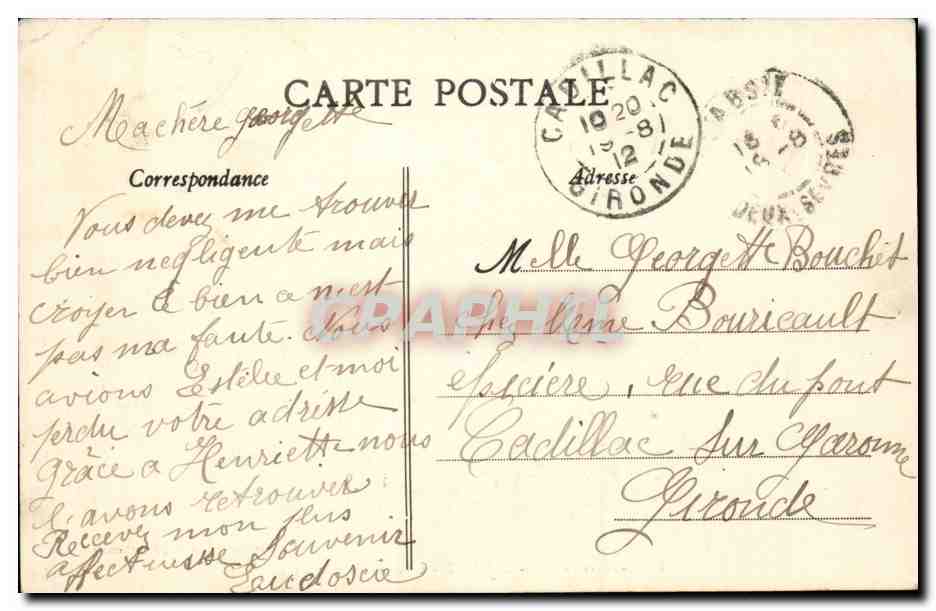 CARTE POSTALE
Ma chère georgette
Correspondance
Vous devez me trouver
bien negligente mais
croyer le bien ce n'est
pas ma faute. Nous
avions Estélie et moi
perdu votre adrésse
grâce a Henriette nous
l'avons retrouver
Recevez mon plus
affectueuse Souvenir
CADILLAC
1020
19-8
12
GIRONDE
ABSIE
18 -8
DEUX-SEVRES
Adresse
Melle Georgette Bouchet
chez Mme Bouricault
épicière, rue du pont
Cadillac sur Garonne
Gironde
CPAPHIL